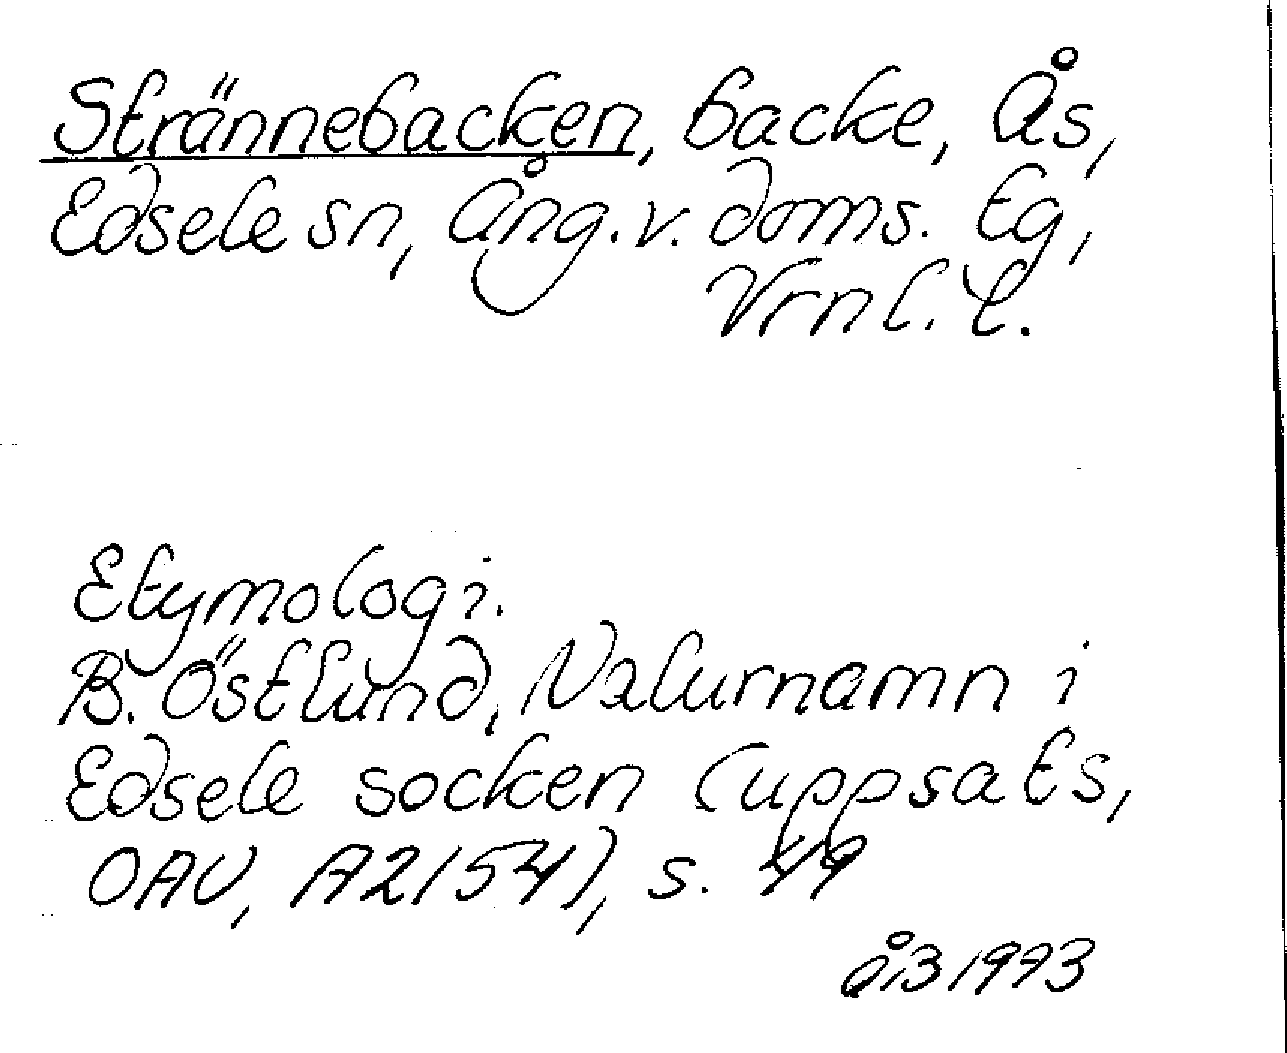 Strännebacken, backe, Ås,
Edsele sn, Ång. v. doms. tg,
Vrnl. l.
Etymologi.
B. Östlund, Naturnamn i
Edsele socken (uppsats,
OAU, A2154), s. 49
åB 1993